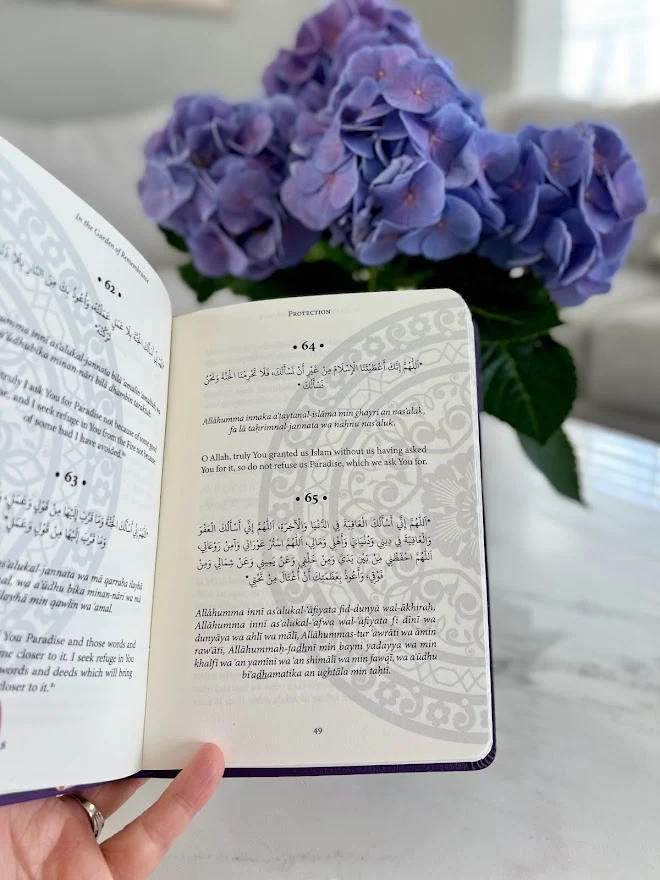 In the Garden of Remembrance
• 62 •
إِنِّي أَسْأَلُكَ الْجَنَّةَ بِلَا عَمَلٍ عَمِلْتُهُ، وَأَعُوذُ بِكَ مِنَ النَّارِ بِلَا
innī as'alukal-jannata bilā 'amalin
minan-nāri bilā dhambin taraktuh.
truly I ask You for Paradise not because of some good
and I seek refuge in You from the Fire not because
of some bad I have avoided.
• 63 •
إِنِّي أَسْأَلُكَ الْجَنَّةَ وَمَا قَرَّبَ إِلَيْهَا مِنْ قَوْلٍ وَعَمَلٍ،
وَمَا قَرَّبَ إِلَيْهَا مِنْ قَوْلٍ وَعَمَلٍ*
as'alukal-jannata wa mā qarraba ilayhā
wa a'ūdhu bika minan-nāri wa mā
ilayhā min qawlin wa 'amal.
You Paradise and those words and
me closer to it. I seek refuge in You
words and deeds which will bring
closer to it.
PROTECTION
• 64 •
*اَللّٰهُمَّ إِنَّكَ أَعْطَيْتَنَا الْإِسْلَامَ مِنْ غَيْرِ أَنْ نَسْأَلَكَ، فَلَا تَحْرِمْنَا الْجَنَّةَ وَنَحْنُ
نَسْأَلُكَ*
Allāhumma innaka a'ṭaytanal-islāma min ghayri an nas'alak,
fa lā taḥrimnal-jannata wa naḥnu nas'aluk.
O Allah, truly You granted us Islam without us having asked
You for it, so do not refuse us Paradise, which we ask You for.
• 65 •
*اَللّٰهُمَّ إِنِّي أَسْأَلُكَ الْعَافِيَةَ فِي الدُّنْيَا وَالْآخِرَةِ، اَللّٰهُمَّ إِنِّي أَسْأَلُكَ الْعَفْوَ
وَالْعَافِيَةَ فِي دِينِي وَدُنْيَايَ وَأَهْلِي وَمَالِي، اَللّٰهُمَّ اسْتُرْ عَوْرَاتِي وَآمِنْ رَوْعَاتِي،
اَللّٰهُمَّ احْفَظْنِي مِنْ بَيْنِ يَدَيَّ وَمِنْ خَلْفِي وَعَنْ يَمِينِي وَعَنْ شِمَالِي وَمِنْ
فَوْقِي، وَأَعُوذُ بِعَظَمَتِكَ أَنْ أُغْتَالَ مِنْ تَحْتِي*
Allāhumma innī as'alukal-'āfiyata fid-dunyā wal-ākhirah,
Allāhumma innī as'alukal-'afwa wal-'āfiyata fī dīnī wa
dunyāya wa ahlī wa mālī, Allāhummas-tur 'awrāti wa āmin
raw'āti, Allāhummaḥ-faḏhnī min bayni yadayya wa min
khalfi wa 'an yamīnī wa 'an shimālī wa min fawqī, wa a'ūdhu
bi'aḏhamatika an ughtāla min taḥtī.
49